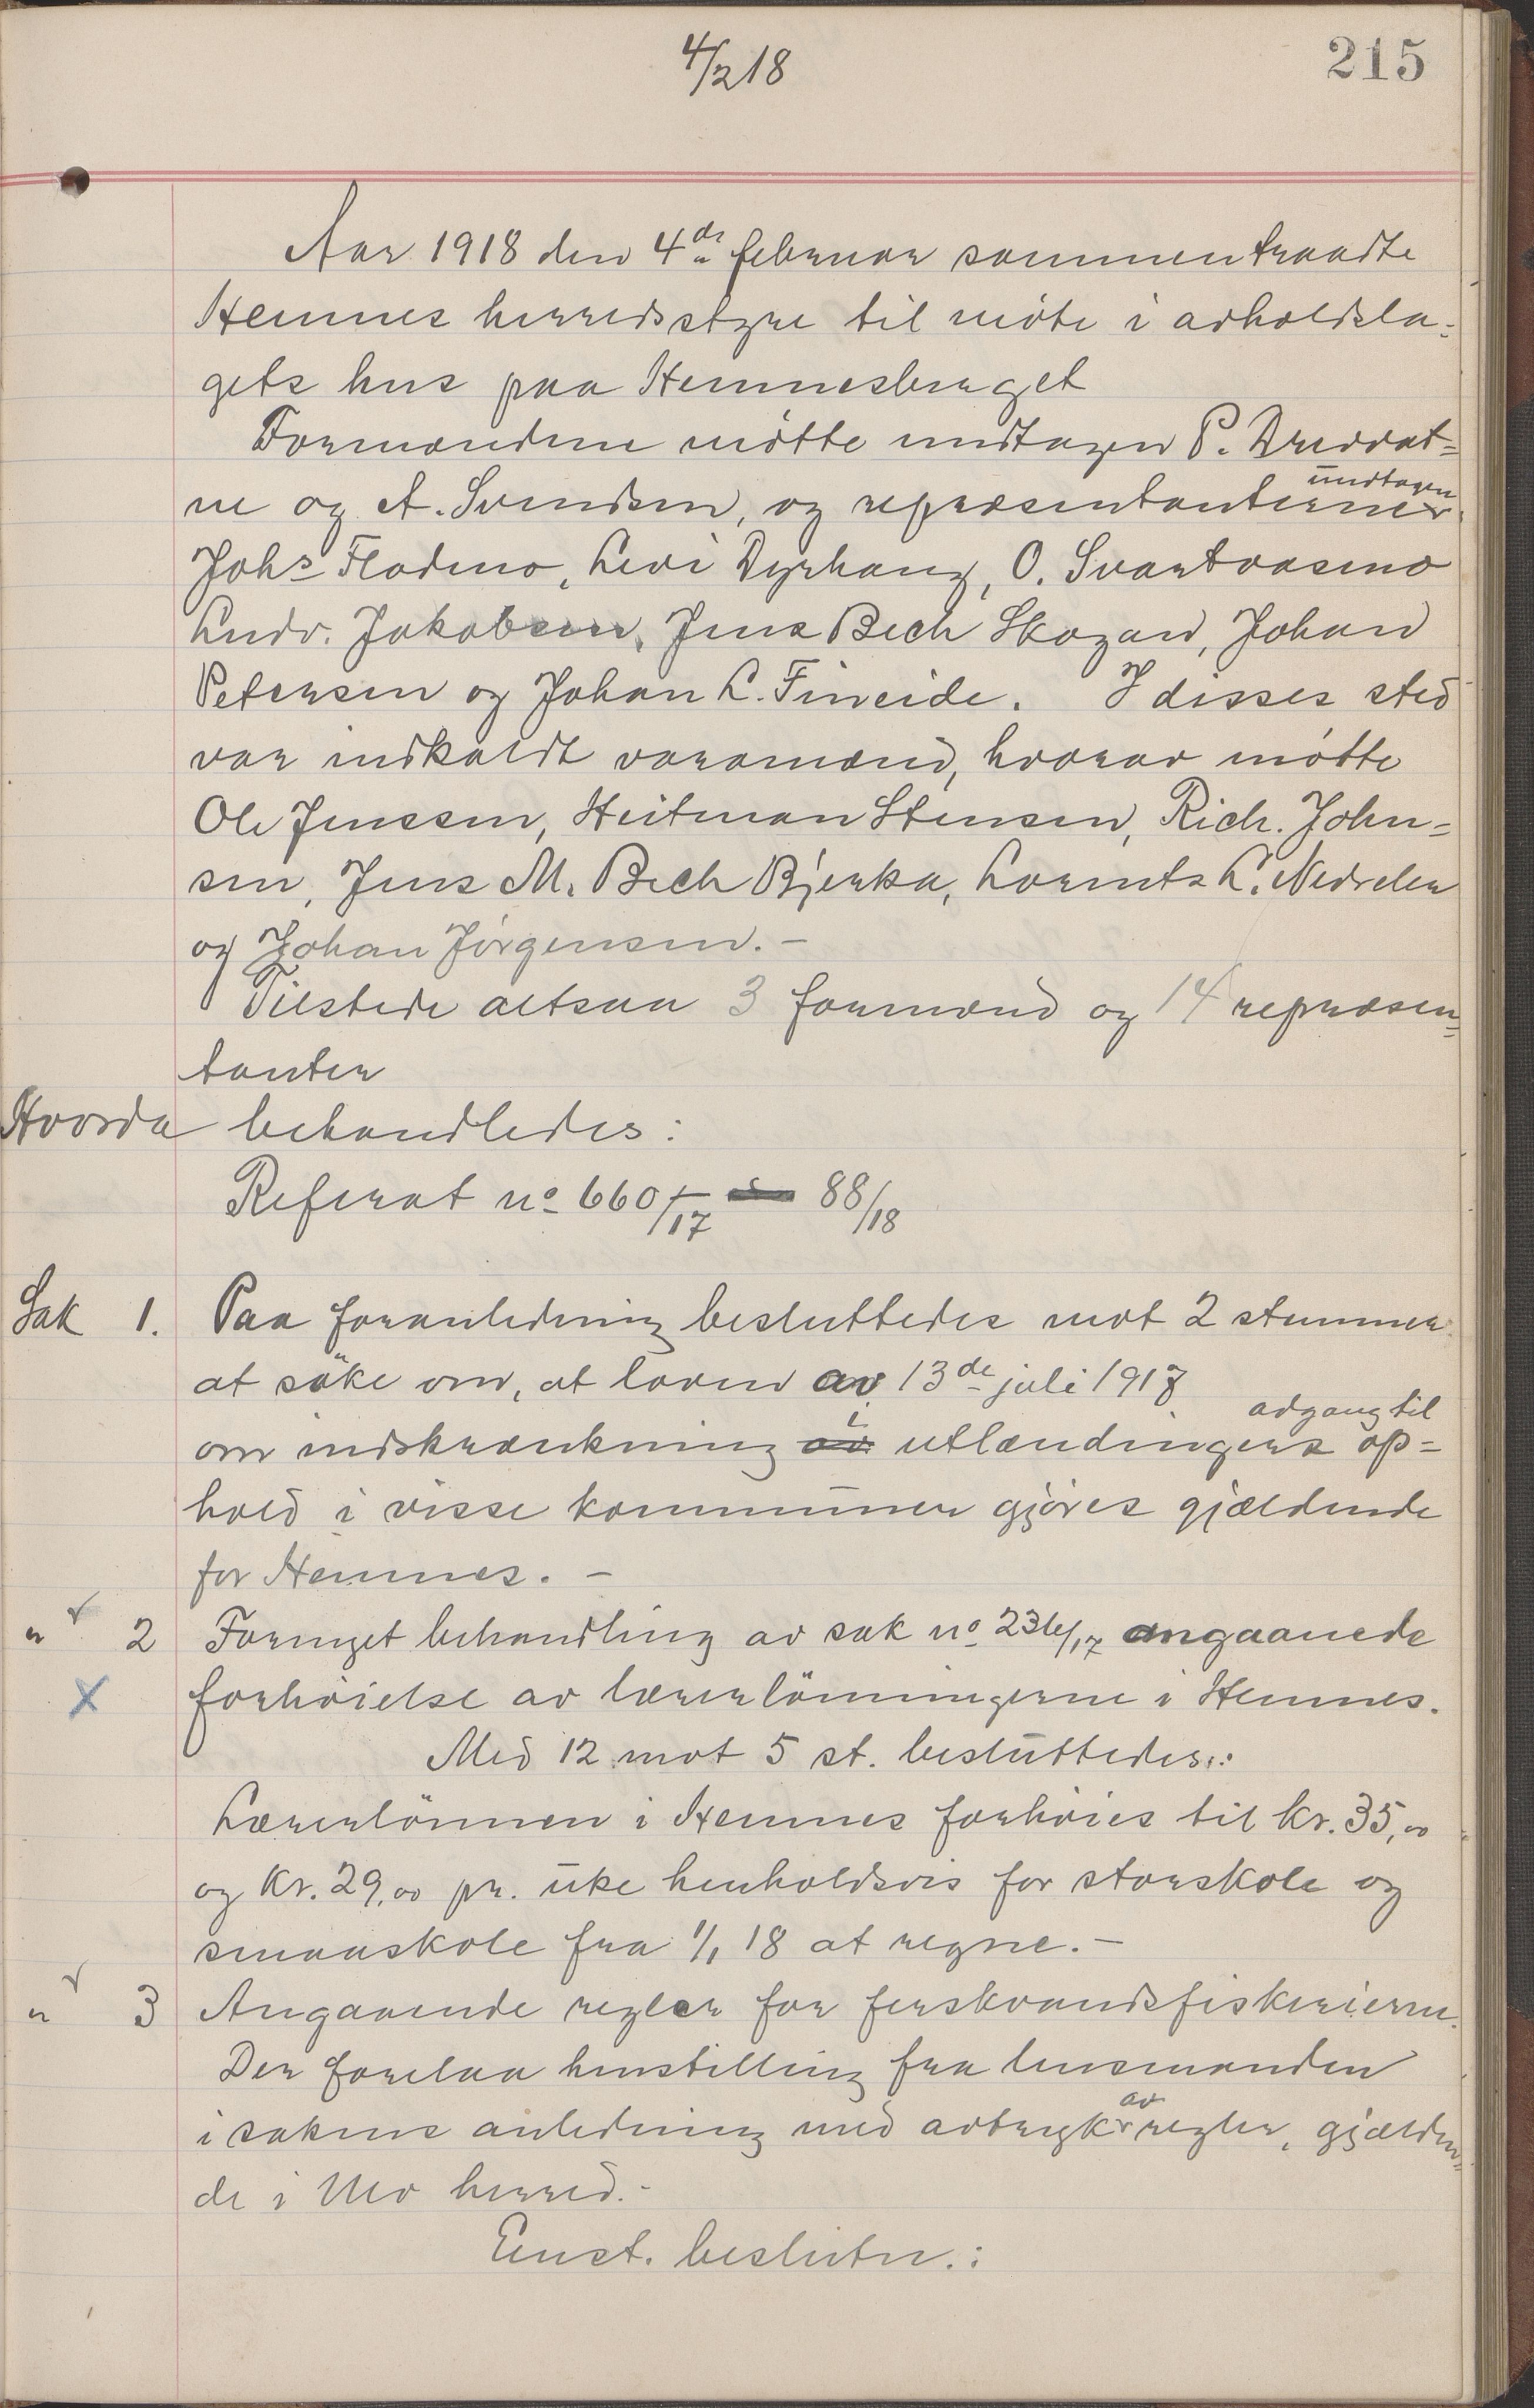 4/2 18
215
Aar 1918 den 4de februar sammentraadte
Hemnes herredsstyre til møte i avholdsla-
gets hus paa Hemnesberget
Formændene møtte undtagen P. Drevvat-
ne og A. Svendsen, og repræsentanterne undtagen
Johs Flodmo, Levi Dyrhaug, O. Svartvasmo
Andr. Jakobsen, Jens Bech Skogan, Johan
Petersen og Johan L. Fineide. I disses sted
var indkaldt varamænd, hvorav møtte
Ole Jenssen, Heitman Stensen, Rich. John-
sen, Jens M. Bech Bjerka, Lorents L. Nedreler
og Johan Jörgensen.-
Tilstede altsaa 3 formænd og 14 repræsen-
tanter
Hvorda behandledes:
Referat no 660/17 - 88/18
Sak 1. Paa foranledning besluttedes mot 2 stemmer
at søke om, at loven av 13de juli 1917
om indskrænkning i utlændingers adgang til op-
hold i visse kommuner gjøres gjældende
for Hemnes. -
" 2 Fornyet behandling av sak no 236/17 angaaende
forhøielse av lærerlönningerne i Hemnes.
Med 12 mot 5 st. besluttedes:
Lærerlönnen i Hemnes forhøies til kr. 35,00
og kr. 29,00 pr. uke henholdsvis for storskole og
smaaskole fra 1/1 18 at regne.-
" 3 Angaaende regler for ferskvandsfiskerierne.
Der forelaa henstilling fra lensmanden
i sakens anledning med avtryk av regler, gjælden-
de i Mo herred.-
Enst. beslutn.: